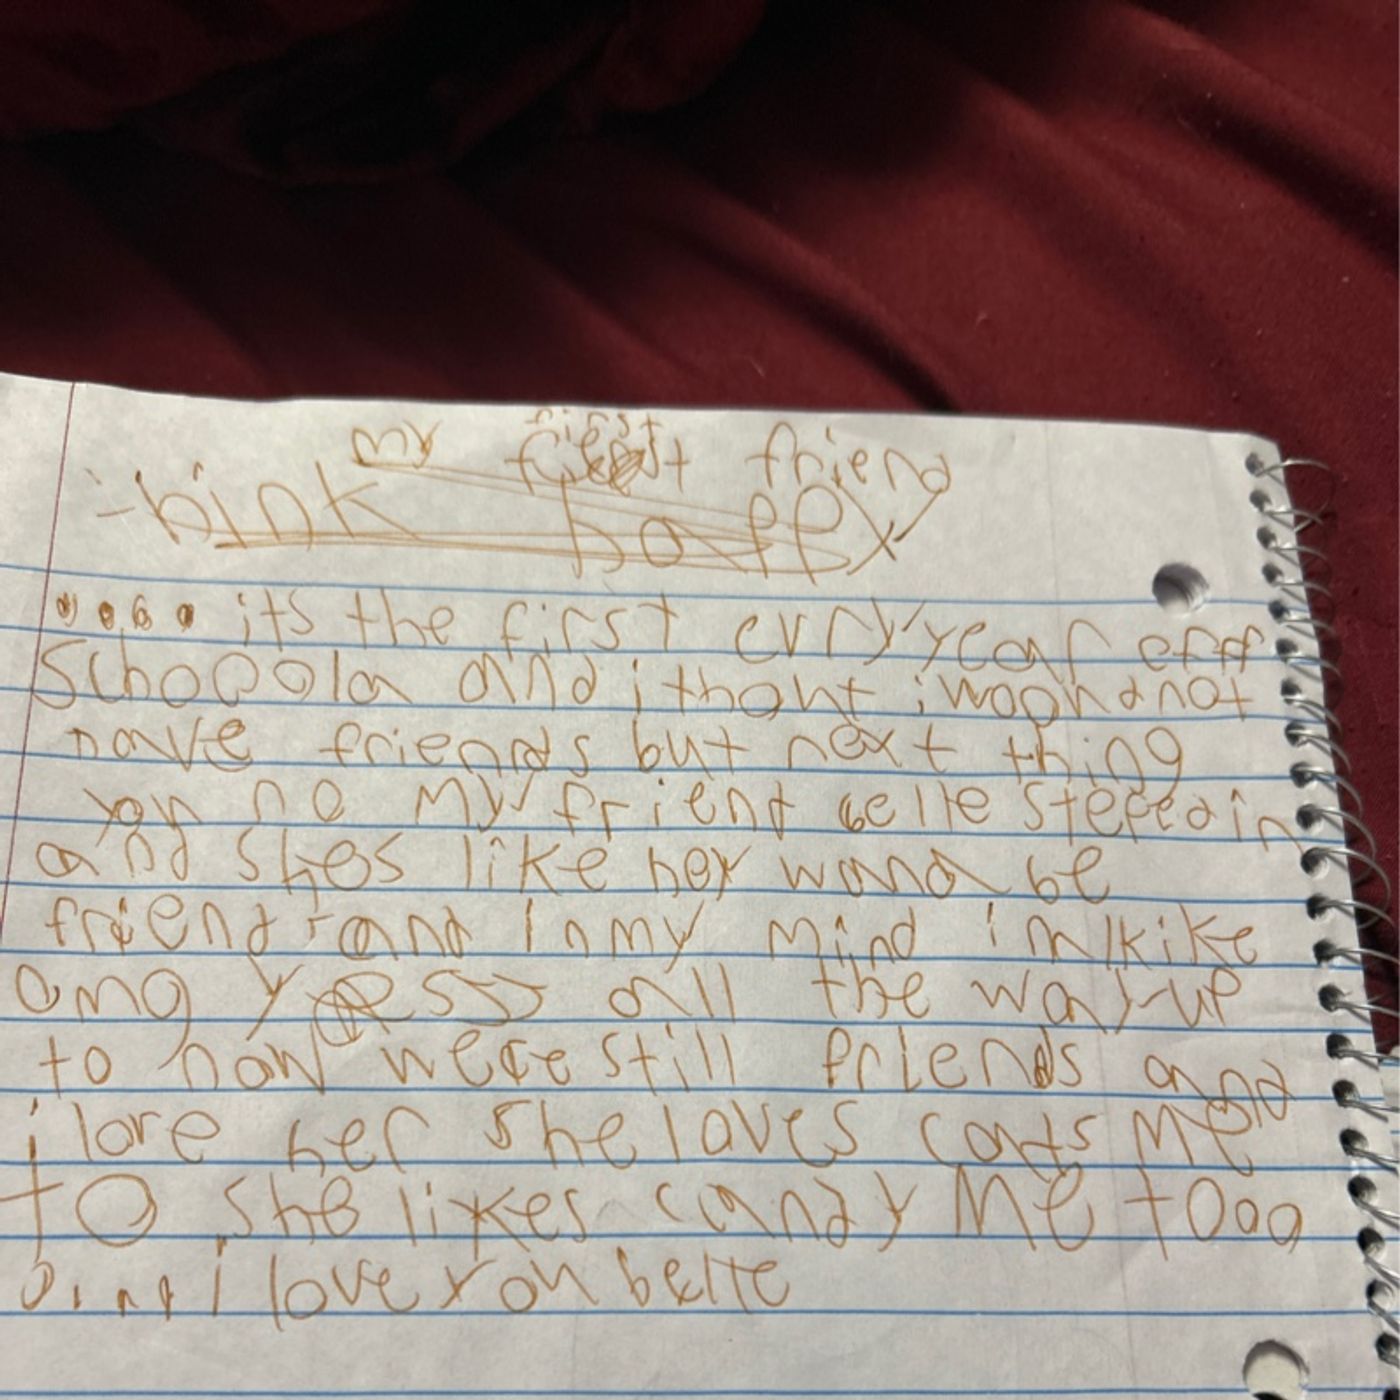 my first friend
bink
.... its the first evry year off
Schooola and i thout i woohd not
have friends but next thing
you no my friend belle steped in
and shes like hey wana be
friend and in my mind im like
omg yesss all the way up
to now were still friends and
i love her she loves cats me
to she likes candy me tooo
o.... i love you belle